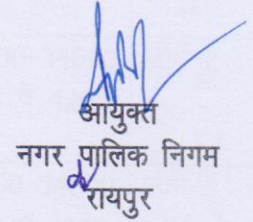 आयुक्त
नगर पालिक निगम
रायपुर